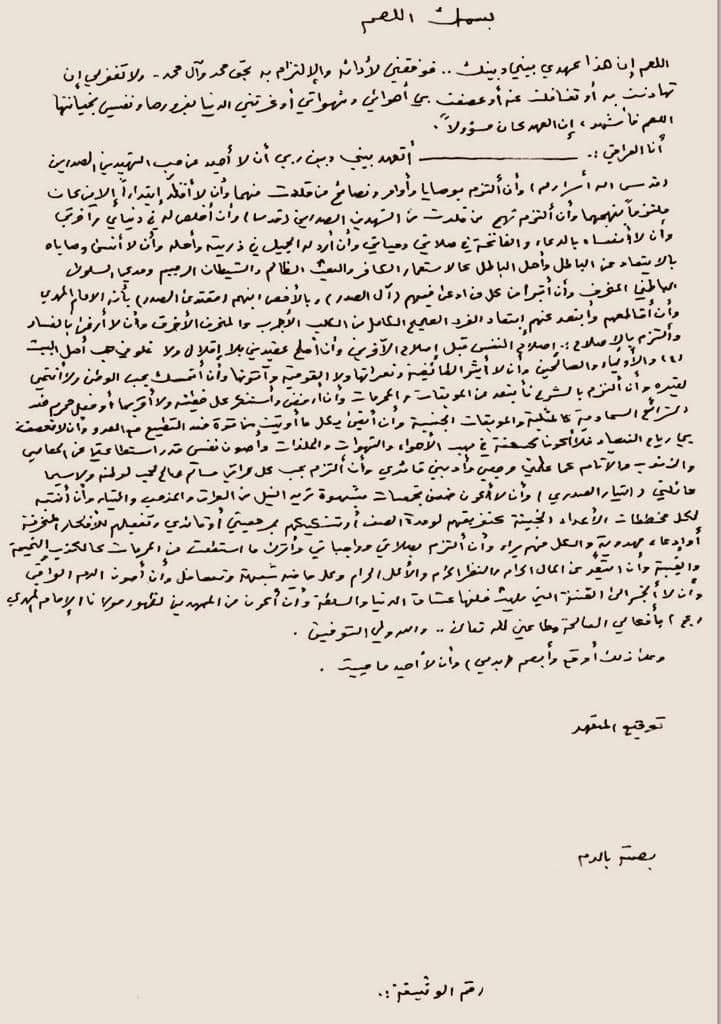 بسمك اللهم
اللهم إن هذا عهدي بيني وبينك .. فوفقني لأدائه والإلتزام به بحق محمد وآل محمد - ولا تغفر لي إن
تهاونت به أو تغافلت عنه أو عصفت بي أهوائي وشهواتي أو غرتني الدنيا بغرورها ونفسي بخيانتها
اللهم فأشهد، إن العهد كان مسؤولاً.
أنا العراقي :. ــــــــــــــــ أتعهد بيني وبين ربي أن لا أحيد عن حب الشهيدين الصدرين
(قدست أسرارهم) وأن ألتزم بوصايا وأوامر ونصائح من قلدت منهما وأن لا أقلد إبتداءً إلا من كان
ملتزماً بنهجهما وأن ألتزم نهج من قلدت من الشهدين الصدرين (قدسا) وأن أخلص له في دنياي وآخرتي
وأن لا أنساه بالدعاء والفاتحة في صلاتي وحياتي وأن أرد له الجميل في ذريته وأهله وأن لا أنسى وصاياه
بالابتعاد عن الباطل وأهل الباطل كالاستعمار الكافر والبعث الظالم والشيطان الرجيم ومدعي السلوك
الباطني المنحرف وأن أتبرأ من كل من ادعى فيهم (آل الصدر) وبالأخص ابنهم (مقتدى الصدر) بأنه الامام المهدي
وأن أقاطعهم وأبتعد عنهم ابتعاد الفرد الصحيح الكامل من الكلب الأجرب والمنحرف الأخرق وأن لا أرضى بالفساد
وألتزم بالإصلاح :. إصلاح النفس قبل إصلاح الآخرين وأن أصلح عقيدتي بلا إقلال ولا غلو في حب أهل البيت
(ع) والأولياء والصالحين وأن لا أثير الطائفية ونعراتها ولا القومية وآتونها وأن أتمسك بحب الوطن ولا أنتمي
لغيره وأن ألتزم بالشرع فأبتعد عن الموبقات والمحرمات وأن أرفض وأستنكر كل خطيئة ولا أقربها أو فعل محرم ضد
الشرائع السماوية كالمثلية والموبقات الجنسية وأن أتقي بكل ما أوتيت من قوة ضد التطبيع مع العدو وأن لا تعصف
بي رياح الفساد فلا أكون كريشة في مهب الأهواء والشهوات والملذات وأصون نفسي قدر استطاعتي عن المعاصي
والذنوب والآثام كما علمني مرجعي وأدبني قائدي وأن ألتزم بحب كل عراقي مسالم صالح محب لوطنه ولا سيما
عائلتي (التيار الصدري) وأن لا أكون ضمن تجمعات مشبوهة تريد النيل من العراق والمذهب والتيار وأن أنتبه
لكل مخططات الأعداء الخبيثة كتفريقهم لوحدة الصف أو تشكيكهم بمرجعيتي أو قائدي وتفعيلهم للأفكار المنحرفة
أو ادعاء مهدوية والكل منهم براء وأن ألتزم بصلاتي وواجباتي وأترك ما استطعت من المحرمات كالكذب والنميمة
والغيبة وأن أبتعد عن المال الحرام والنظر الحرام والأكل الحرام وكل ما فيه شبهة وتساهل وأن أصون الدم العراقي
وأن لا أنجر الى الفتنة التي يلهث خلفها عشاق الدنيا والسلطة وأن أكون من الممهدين لظهور مولانا الإمام المهدي
(عج) بأفعالي الصالحة وطاعتي لله تعالى .. والله ولي التوفيق .
وعلى ذلك أوقع وأبصم (بدمي) وأن لا أحيد ما حييت .
توقيع المتعهد
بصمة بالدم
رقم الوثيقة :.